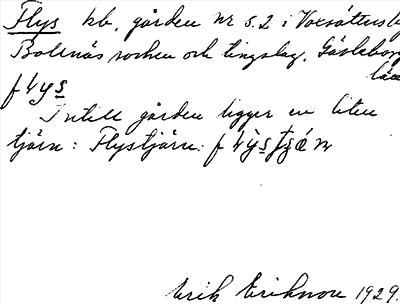 Flys hb. gården nr s. 2 i Voxsätters by
Bollnäs socken och tingslag. Gävleborgs
län
Intill gården ligger en liten
tjärn: Flystjärn:
Erik Eriksson 1929.